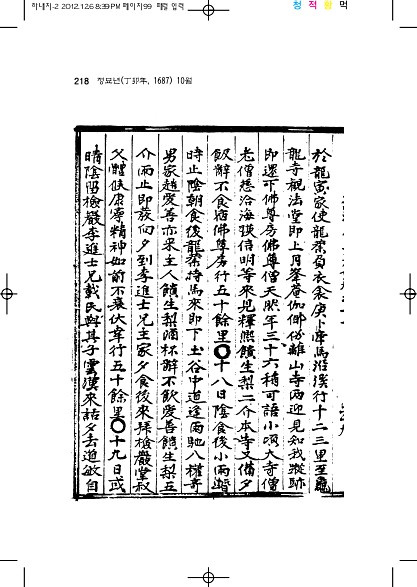 하내지-2 2012.12.6 8:39 PM 페이지99 패컬 입력
청 적 황 먹
218 정묘년(丁卯年, 1687) 10월
於龍寅家使龍榮負衣衾庚卜牽馬沿溪行十二三里至龜
龍寺觀法堂即上月峯庵伽佛
離山寺 迎見知我蹤跡
即還下佛尊房佛尊僧天然年三十六稍可語小頃大寺僧
老僧 海瑛信明等來見 饋生梨二介本寺又備夕
飯辭不食宿佛尊房行五十餘里○十八日陰食後小雨
時止陰朝食後龍榮持馬來即下土谷中道逢雨馳入權奇
男家趙愛善亦來主人饋生梨酒杯辭不飲愛善饋生梨五
介雨止即發向夕到李進士兄主家夕食後來拜檢嚴堂叔
父體候康寧精神如前不衰伏幸行五十餘里○十九日或
晴陰留檢嚴李進士兄載氏與其子雲漢來話夕去道敏自